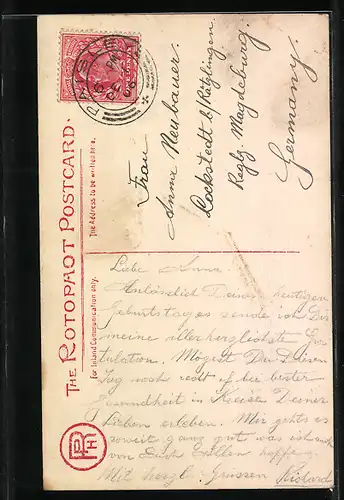 THE ROTOPHOT POSTCARD.
The Address to be written here.
for Inland Communication only.
PAISLEY
Frau
Anna Neubauer.
Lockstedt b/Rätzlingen
Regbz. Magdeburg.
Germany.
Liebe Anna.
Anlässlich Deines heutigen
Geburtstages sende ich Dir
meine allerherzlichste Gra-
tulation. Mögest Du Diesen
Tag noch recht oft bei bester
Gesundheit im Kreise Deiner
Lieben erleben. Mir geht es
soweit ganz gut was ich auch
von Euch Allen hoffe.
Mit herzl. Grüssen Richard
RPH